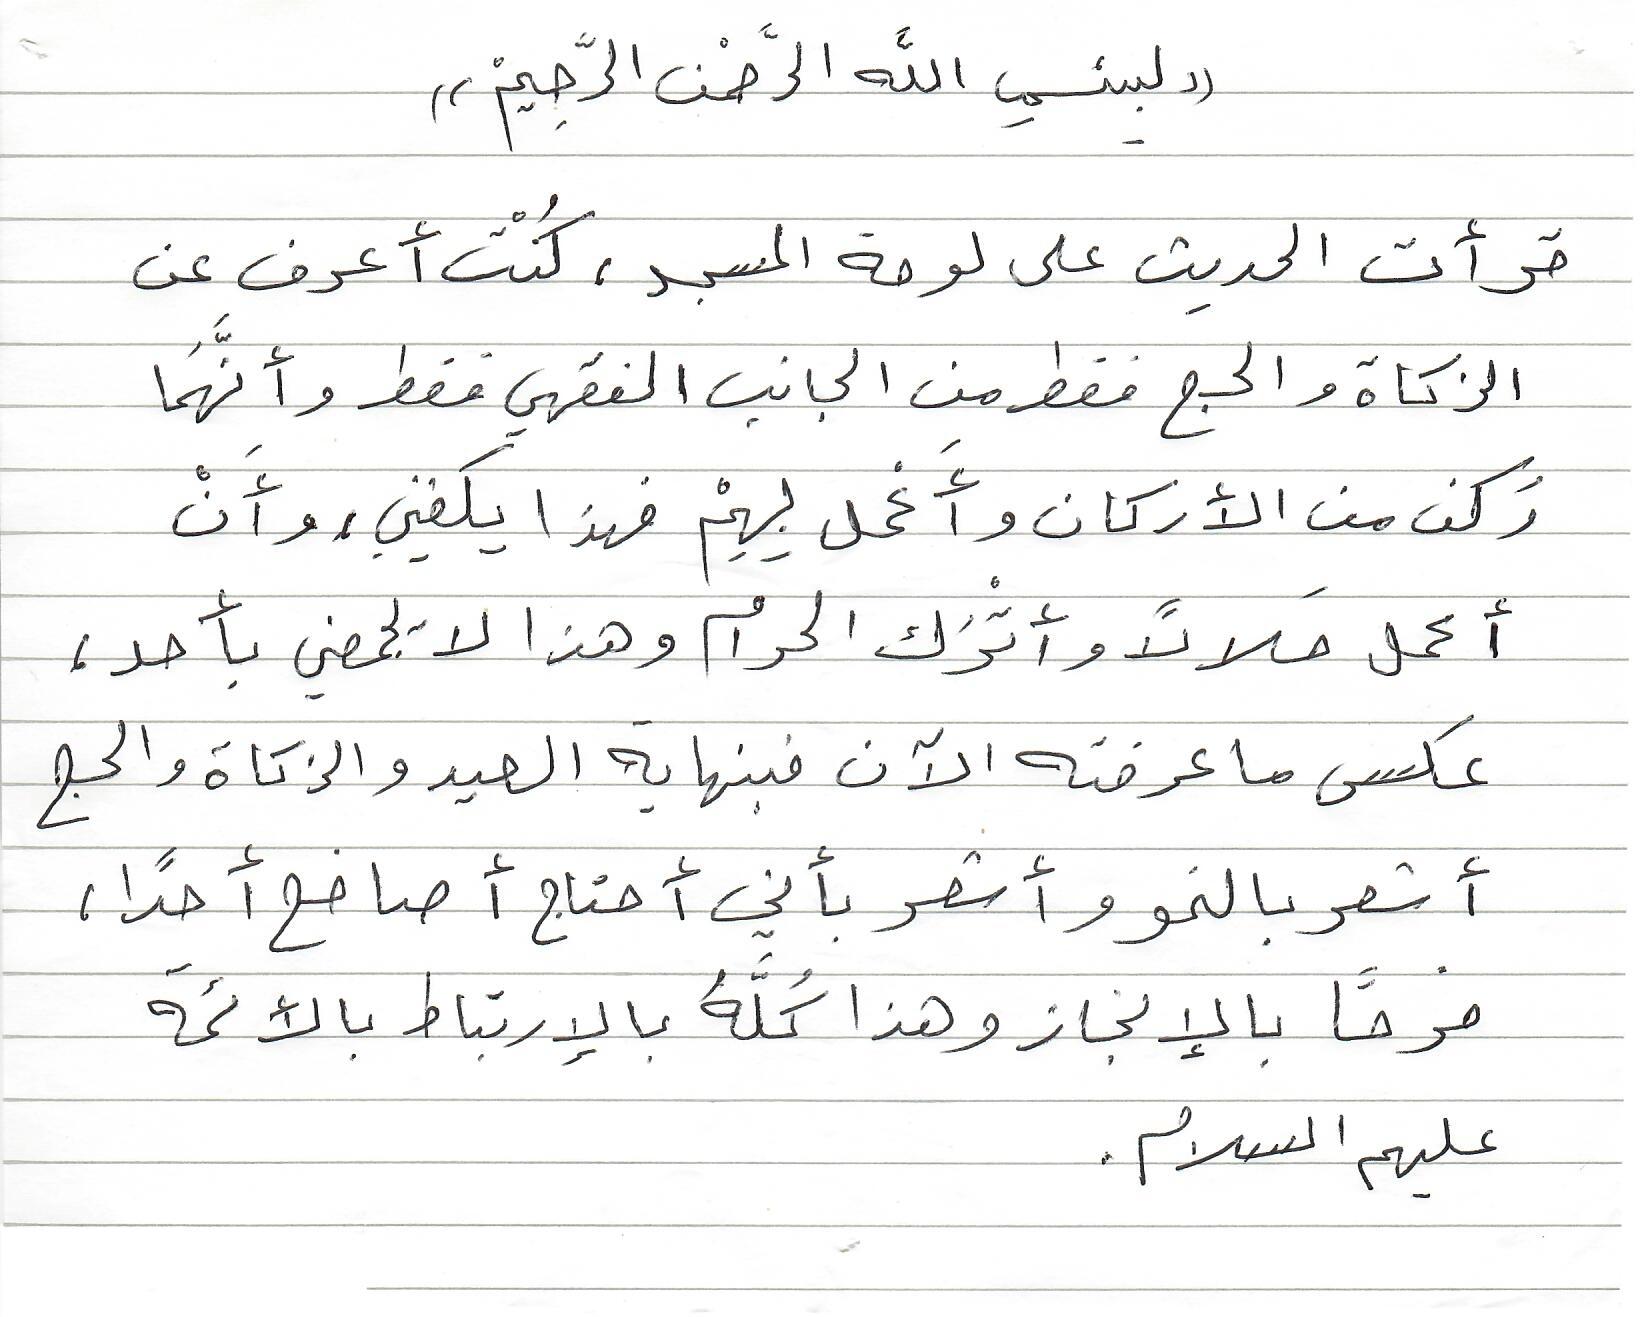 «بِسْمِ اللَّه الرَّحْمٰن الرَّحِيمْ»
قرأت الحديث على لوحة المسجد، كُنْت أعرف عن
الزكاة والحج فقط من الجانب الفقهي فقط وأنَّهُمَا
رُكن من الأركان وأَعْمل بِهِمْ فهذا يَكفيني، وأَنْ
أعمل حَلالاً وأتْرُك الحرام وهذا لا يخصني بأحد،
عكس ما عرفته الآن فبنهاية العيد والزكاة والحج
أشعر بالنمو وأشعر بأني أحتاج أصافح أحدًا،
فرحًا بالإنجاز وهذا كُلَّهُ بالإرتباط بالأئمة
عليهم السلام.